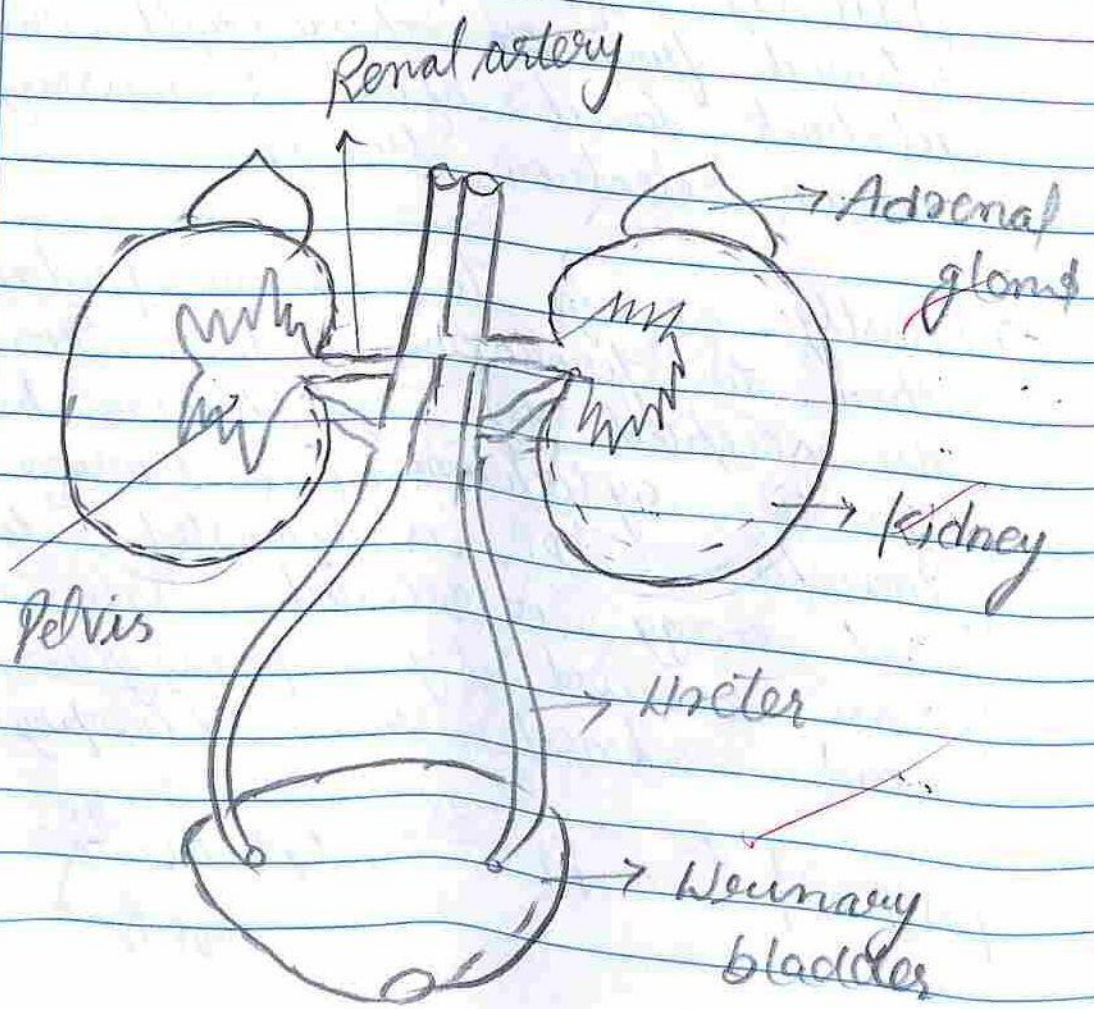 Renal artery
Adrenal
gland
Kidney
Pelvis
Ureter
Urunary
bladder